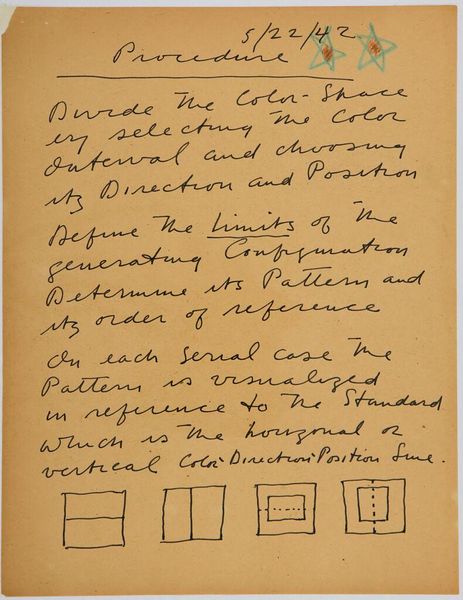 5/22/42
Procedure
Divide the Color-Space
by selecting the Color
Interval and choosing
its Direction and Position
Define the limits of the
generating Configuration
Determine its Pattern and
its order of reference
In each Serial case the
Pattern is visualized
in reference to the Standard
which is the horizonal or
vertical Color-Direction-Position Line.